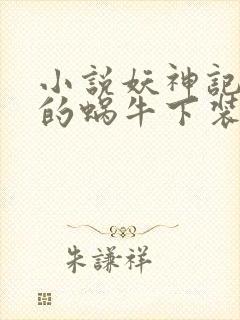 小説妖神記
的蝸牛下装
朱謙祥